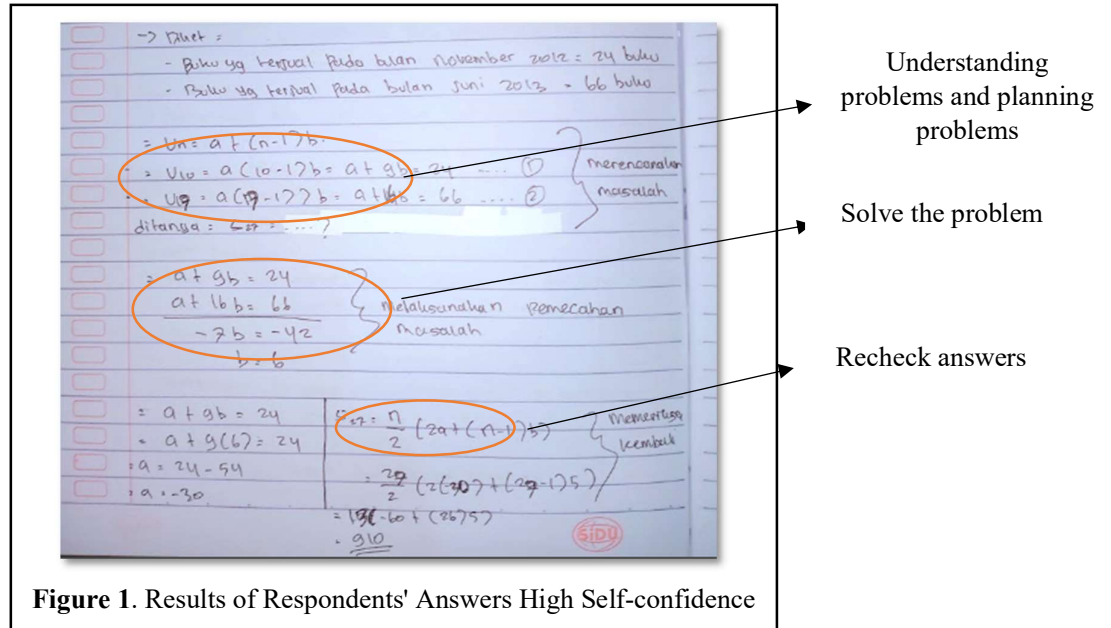 -> Diket =
- Buku yg terjual Pada bulan november 2012 = 24 buku
- Buku yg terjual Pada bulan Juni 2013 = 66 buku
= Un = a + (n-1) b.
= U10 = a (10-1) b = a + 9b = 24 .... ①
= U17 = a (17-1) b = a + 16b = 66 ..... ②
merencanakan
masalah
ditanya = = .... ?
= a + 9b = 24
a + 16b = 66
-7b = -42
b = 6
melaksanakan Pemecahan
masalah
= a + 9b = 24
= a + 9(6) = 24
= a = 24 - 54
= a = -30
= n/2 (2a + (n-1) 5)
= /2 (2(-30) + (-1) 5)
= -60 + (26)5)
= 910
memeriksa
kembali
SIDU
Understanding
problems and planning
problems
Solve the problem
Recheck answers
Figure 1. Results of Respondents' Answers High Self-confidence